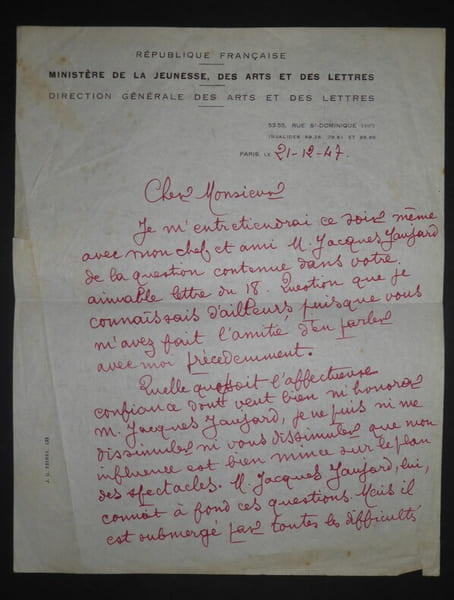 RÉPUBLIQUE FRANÇAISE
MINISTÈRE DE LA JEUNESSE, DES ARTS ET DES LETTRES
DIRECTION GÉNÉRALE DES ARTS ET DES LETTRES
53-55, RUE St-DOMINIQUE (VIIe)
INVALIDES
PARIS, LE 21-12-47.
Cher Monsieur
Je m'entretiendrai ce soir même
avec mon chef et ami M. Jacques Jaujard
de la question contenue dans votre
aimable lettre du 18. Question que je
connaissais d'ailleurs puisque vous
m'avez fait l'amitié d'en parler
avec moi précédemment.
Quelle que soit l'affectueuse
confiance dont veut bien m'honorer
M. Jacques Jaujard, je ne puis ni me
dissimuler ni vous dissimuler que mon
influence est bien mince sur le plan
des spectacles. M. Jacques Jaujard, lui,
connaît à fond ces questions. Mais il
est submergé par toutes les difficultés